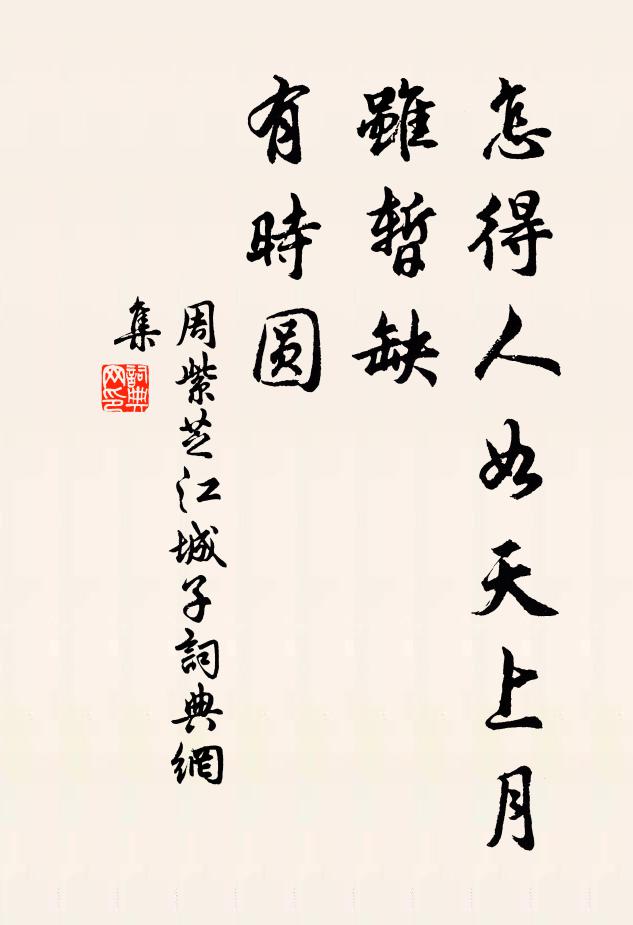 怎得人如天上月
雖暫缺
有時圆
周紫芝江城子詞典網
集
詞典
网印